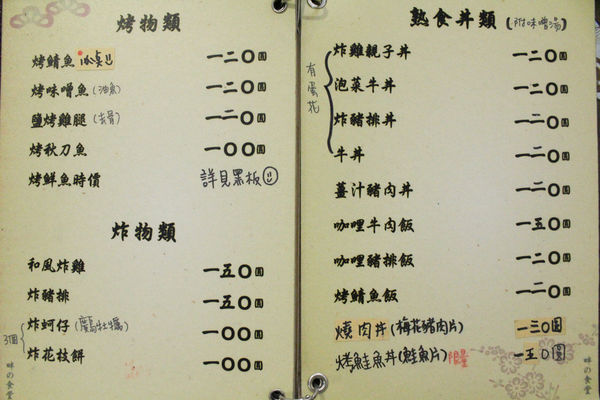 烤物類
烤鯖魚 一二〇圓
烤味噌魚(油魚) 一二〇圓
鹽烤雞腿(去骨) 一二〇圓
烤秋刀魚 一〇〇圓
烤鮮魚時價 詳見黑板
炸物類
和風炸雞 一五〇圓
炸豬排 一五〇圓
3個
炸蚵仔(廣島牡蠣) 一〇〇圓
炸花枝餅 一〇〇圓
味の食堂
熟食丼類(附味噌湯)
有蛋花
炸雞親子丼 一二〇圓
泡菜牛丼 一二〇圓
炸豬排丼 一二〇圓
牛丼 一二〇圓
薑汁豬肉丼 一二〇圓
咖哩牛肉飯 一五〇圓
咖哩豬排飯 一二〇圓
烤鯖魚飯 一二〇圓
燒肉丼(梅花豬肉片) 一三〇圓
烤鮭魚丼(鮭魚片)限量 一五〇圓
味の食堂